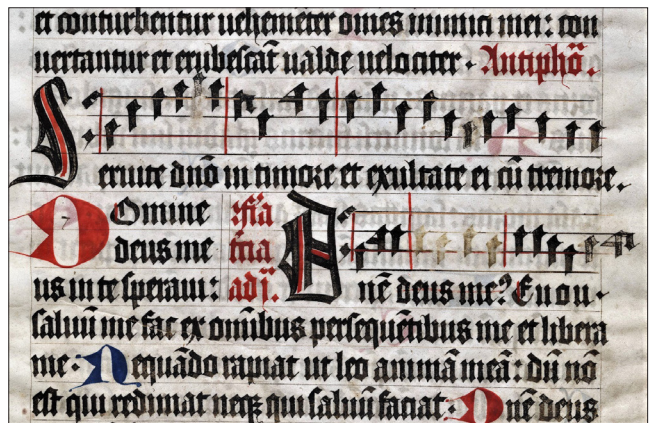 et conturbentur uehemēter om̄es inimici mei: con
uertantur et erubescāt ualde uelociter. Antiphō.
Seruite dnō in timore et exultate ei cū tremore.
DOmine
deus me
us in te speraui: Dnē deus me? Eu ou.
saluū me fac ex om̄ibus persequētibus me et libera
me. Nequādo rapiat ut leo animā meā: dū nō
est qui redimat neqꝫ qui saluū faciat. Dnē deus